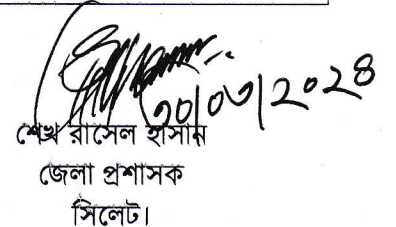 ২০/০৩/২০২৪
শেখ রাসেল হাসান
জেলা প্রশাসক
সিলেট।